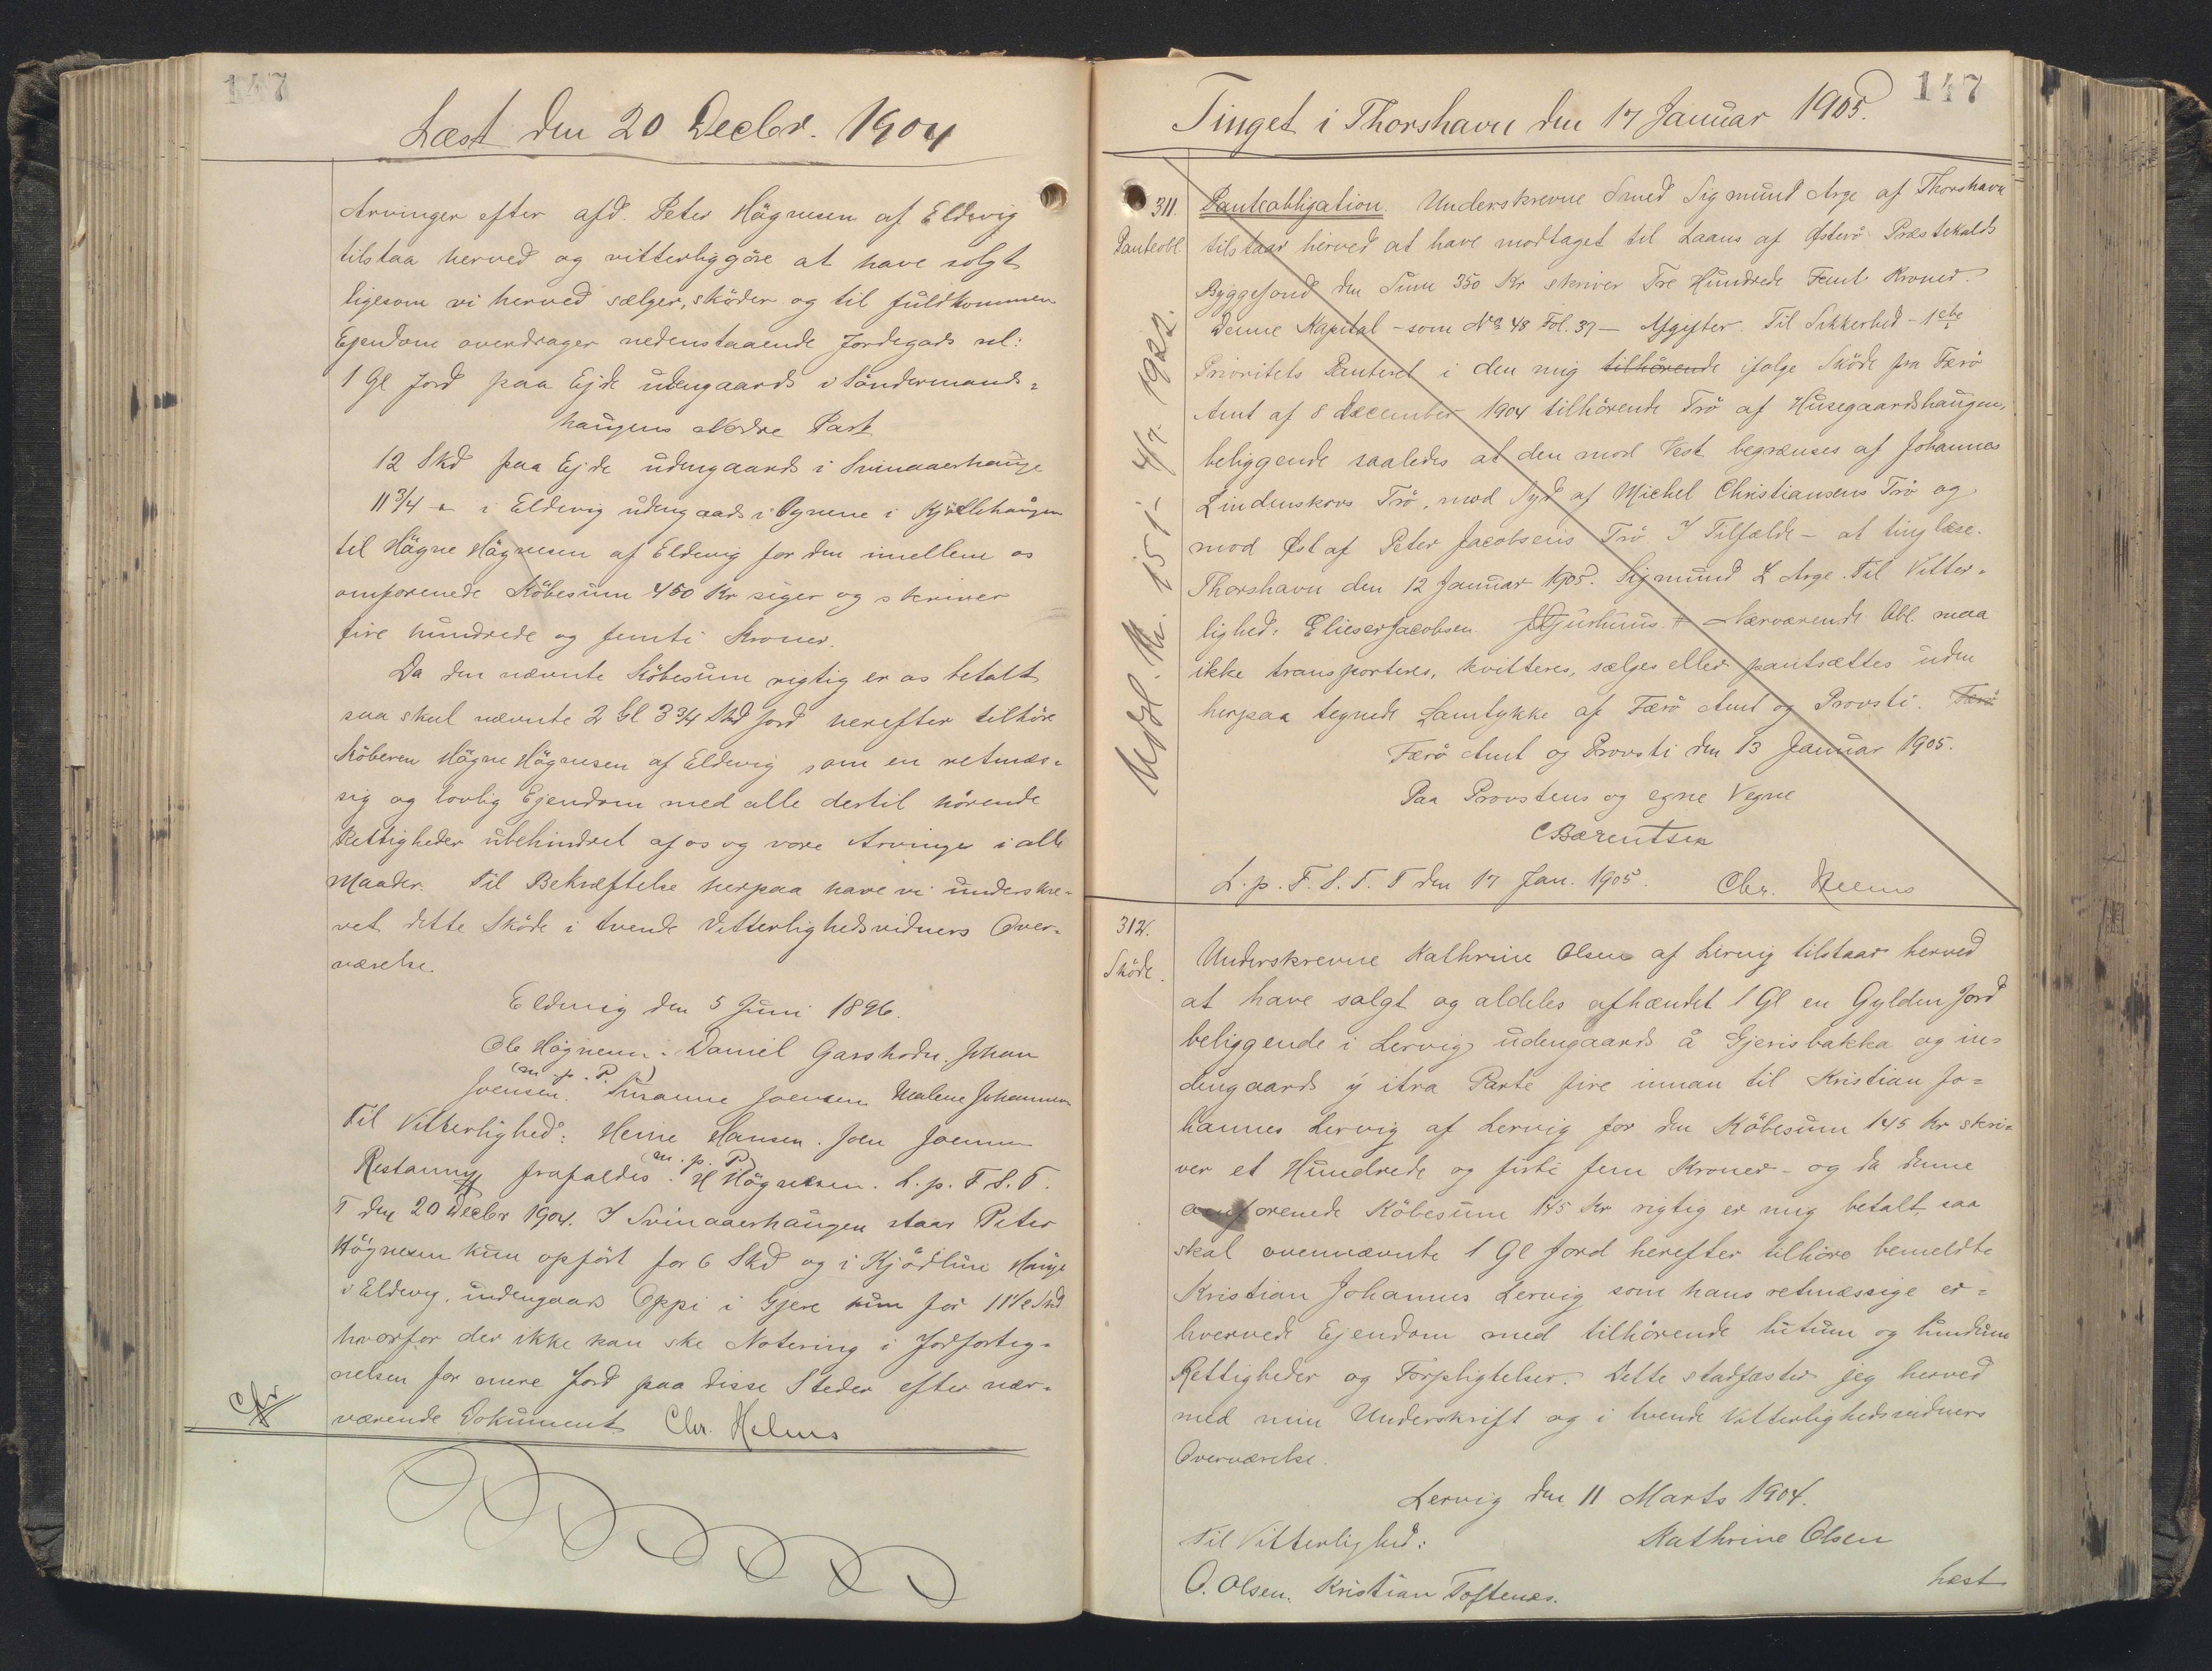 147
Læst den 20 Decbr. 1904
Arvinger efter afd. Peter Högnesen af Eldevig
tilstaa herved og vitterliggöre at have solgt
ligesom vi herved sælger, sköder og til fuldkommen
Ejendom overdrager nedenstaaende Jordegods nl:
1 Gl Jord paa Ejde udengaards i Söndermands-
haugens Nedre Part
12 Skd paa Ejde udengaards i Svinaaerhauge
11 3/4 - i Eldevig udengaards i Ognene i Kjöllehaugen
til Högne Högnesen af Eldevig for den imellem os
omforenede Köbesum 450 Kr siger og skriver
fire hundrede og femti Kroner.
Da den nævnte Köbesum rigtig er os betalt
saa skal nævnte 2 Gl 3 3/4 Skd Jord herefter tilhöre
Köberen Högne Högnesen af Eldevig som en retmæs-
sig og lovlig Ejendom med alle dertil hörende
Rettigheder ubehindret af os og vore Arvinger i alle
Maader. Til Bekræftelse herpaa have vi underskre-
vet dette Sköde i tvende Vitterlighedsvidners Over-
værelse.
Eldevig den 5 Juni 1896.
Ole Högnesen. Daniel Garshodn. Johan
(m. p. P.)
Joensen. Susanne Joensen Malene Johannesen
Til Vitterlighed: Heine Hansen. Joen Joensen
m. p. P.
Restancen frafaldes. H Högnesen. L. p. F. S. T.
T den 20 Decbr 1904. I Svinaaerhaugen staar Peter
Högnesen kun opfört for 6 Skd og i Kjödlun Hauge
i Eldevig, indengaards Oppi i Gjere kun for 11 1/2 Skd
hvorfor der ikke kan ske Notering i Jordforteg-
nelsen for mere Jord paa disse Steder efter nær-
værende Dokument Chr. Helms
147
Tinget i Thorshavn den 17 Januar 1905.
311. Panteobligation. Underskrevne Smed Sigmund Arge af Thorshavn
Panteobl. tilstaar herved at have modtaget til Laans af Østerö Præstekalds
Byggefond den Sum 350 Kr skriver Tre Hundrede Femti Kroner.
Denne Kapital - som No 48 Fol. 39 - Afgifter. Til Sikkerhed - 1ste
Prioritets Panteret i den mig tilhörende ifölge Sköde fra Færö
Amt af 8 December 1904 tilhörende Trö af Husegaardshaugen,
beliggende saaledes at den mod Vest begrænses af Johannes
Lindenskovs Trö, mod Syd af Michel Christiansens Trö og
mod Øst af Peter Jacobsens Trö. I Tilfælde - at tinglæse.
Thorshavn den 12 Januar 1905. Sigmund L Arge. Til Vitter-
lighed: Elieser Jacobsen. JDjurhuus. Nærværende Obl. maa
ikke transporteres, kvitteres, sælges eller pantsættes uden
herpaa tegnede Samtykke af Færö Amt og Provsti. Færö
Færö Amt og Provsti den 13 Januar 1905.
Paa Provstens og egne Vegne
CBærentsen
L. p. F. S. T. T den 17 Jan. 1905. Chr. Helms
Udsl. Th. 151 - 4/7 1922.
312. Underskrevne Kathrine Olsen af Lervig tilstaar herved
Sköde. at have solgt og aldeles afhændet 1 Gl en Gylden Jord
beliggende i Lervig udengaards å Gjerisbakka og in-
dengaards y itra Parte fire innan til Kristian Jo-
hannes Lervig af Lervig for den Köbesum 145 Kr skri-
ver et Hundrede og firti fem Kroner - og da denne
omforenede Köbesum 145 Kr rigtig er mig betalt, saa
skal ovennævnte 1 Gl Jord herefter tilhöre bemeldte
Kristian Johannes Lervig som hans retmæssige er-
hvervede Ejendom med tilhörende lutum og lundum
Rettigheder og Forpligtelser. Dette stadfæster jeg herved
med min Underskrift og i tvende Vitterlighedsvidners
Overværelse.
Lervig den 11 Marts 1904.
Til Vitterlighed: Kathrine Olsen
O. Olsen. Kristian Toftenes.
Læst